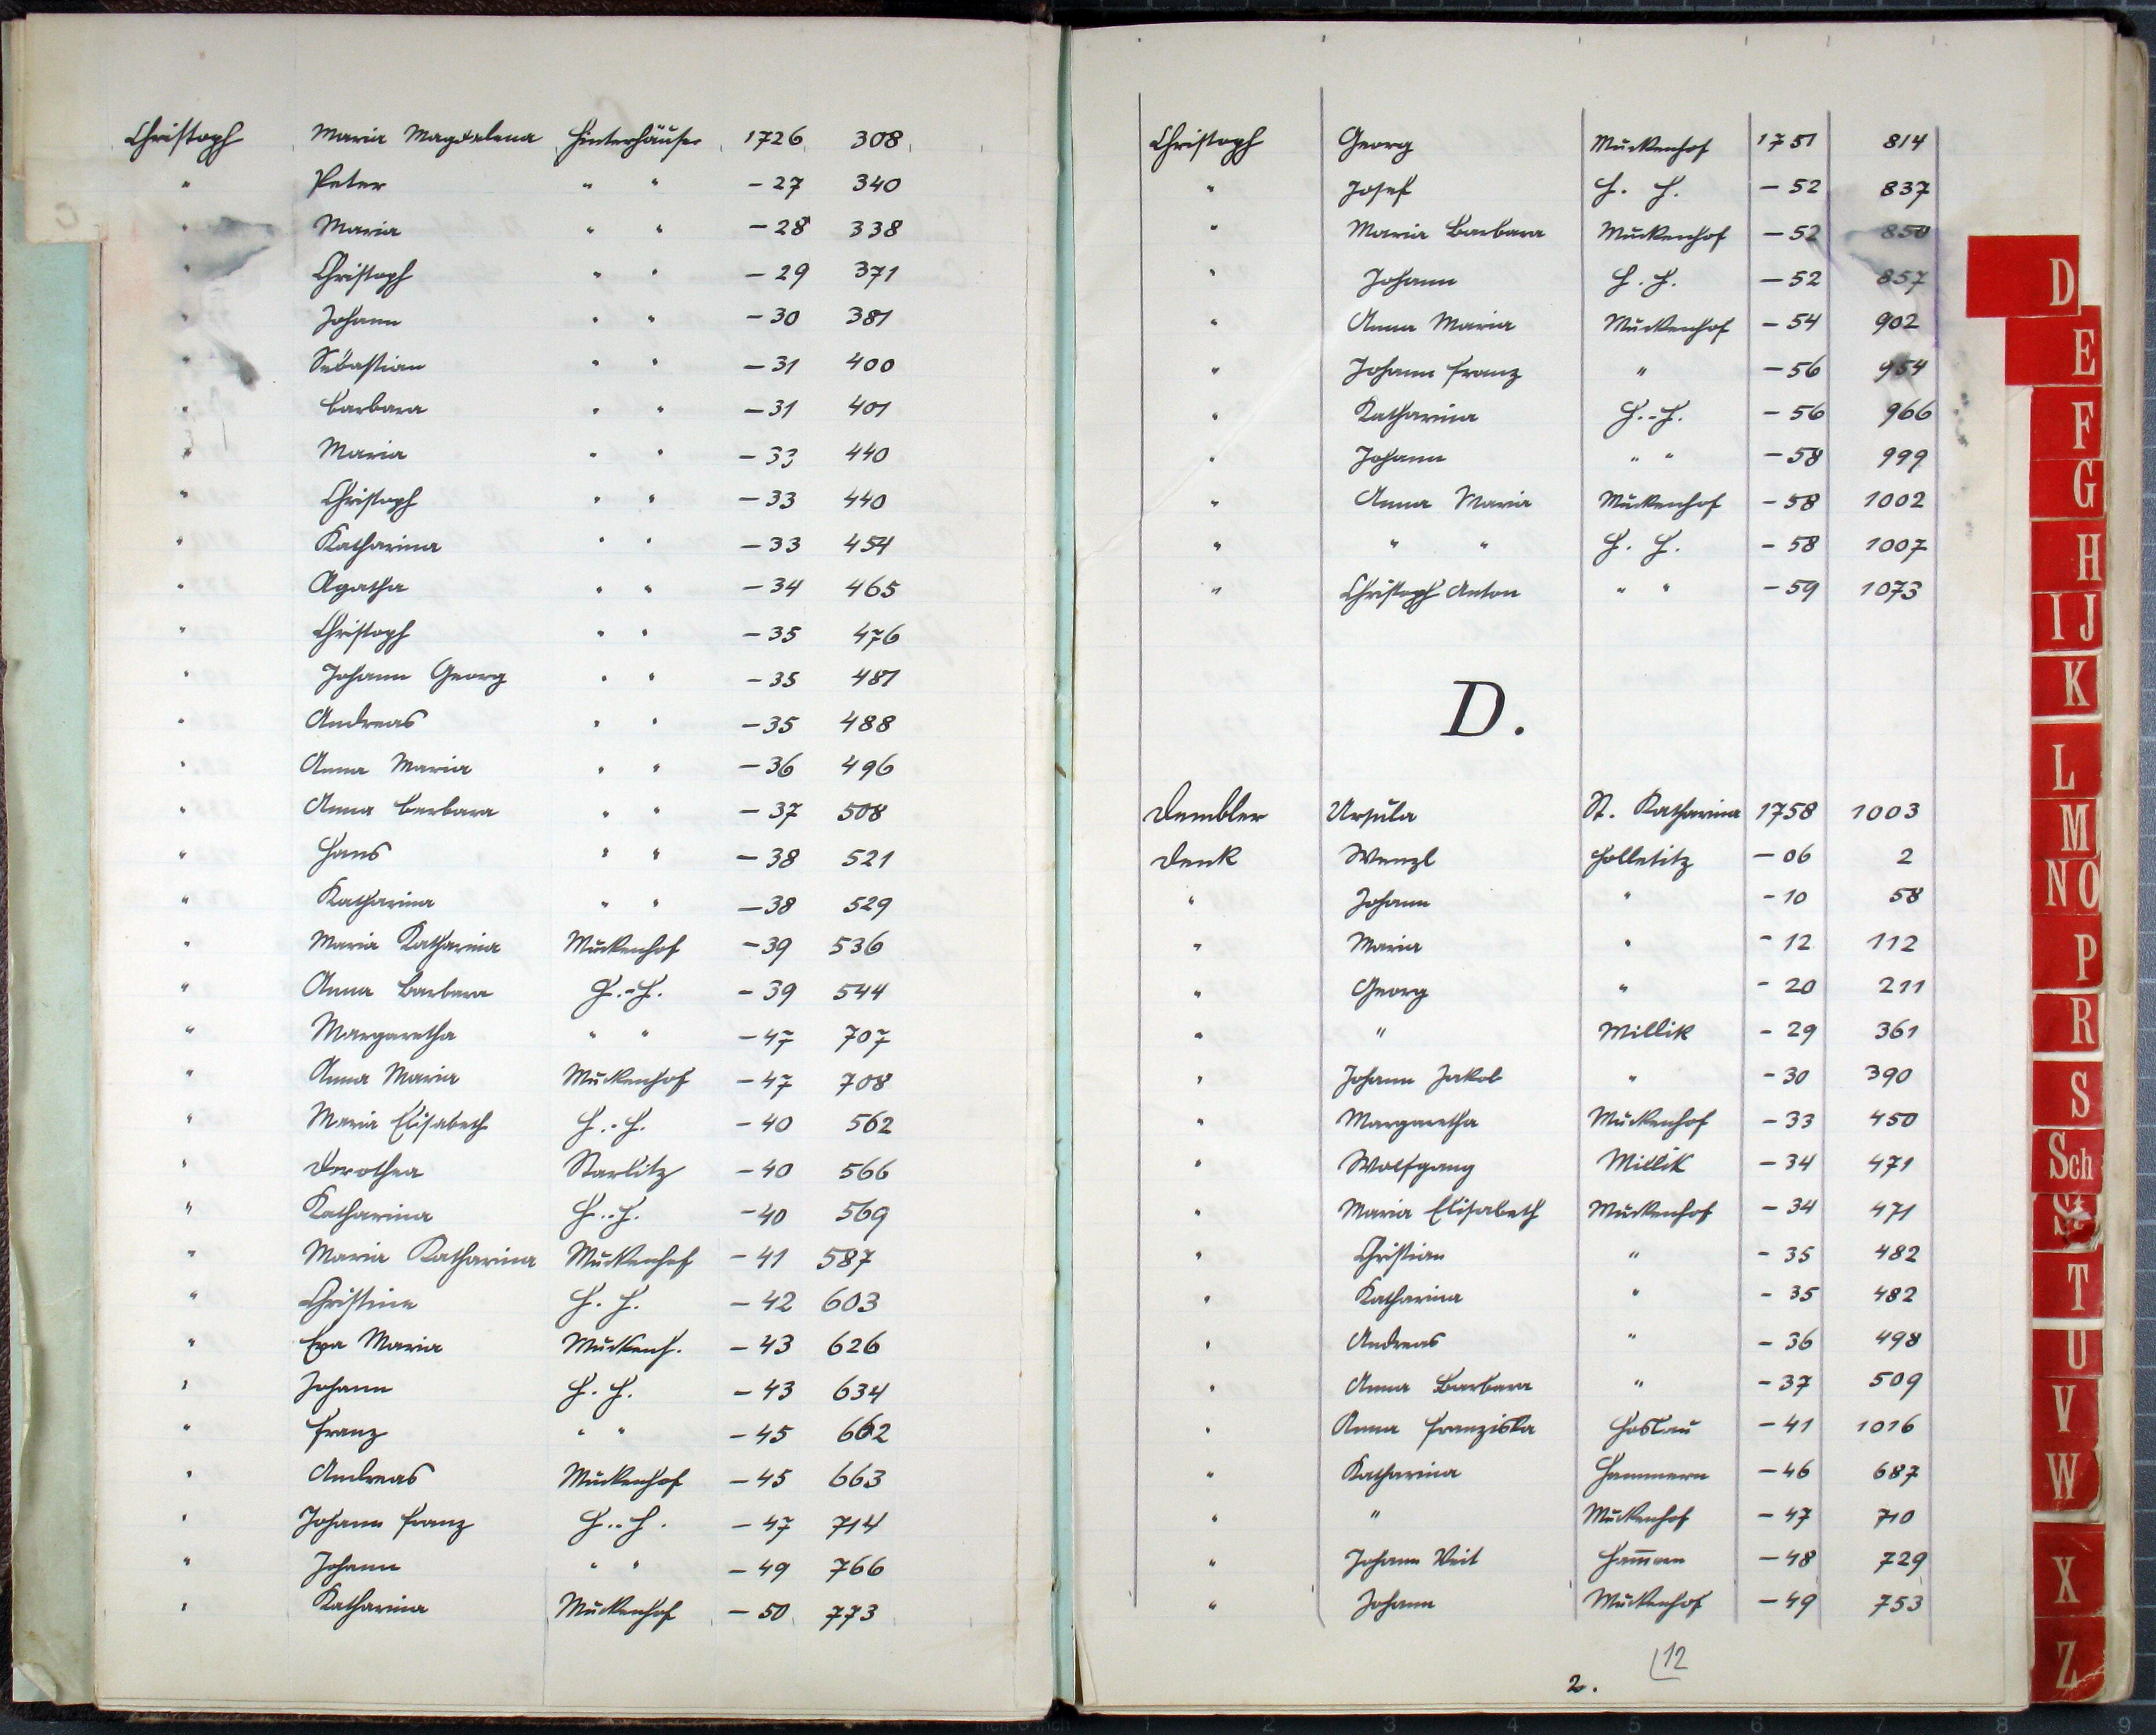 Christoph Maria Magdalena Hinterhäuser 1726 308
" Peter " " -27 340
" Maria " " -28 338
" Christoph " " -29 371
" Johann " " -30 381
" Sebastian " " -31 400
" Barbara " " -31 401
" Maria " " -33 440
" Christoph " " -33 440
" Katharina " " -33 454
" Agatha " " -34 465
" Christoph " " -35 476
" Johann Georg " " -35 487
" Andreas " " -35 488
" Anna Maria " " -36 496
" Anna Barbara " " -37 508
" Hans " " -38 521
" Katharina " " -38 529
" Maria Katharina Muckenhof -39 536
" Anna Barbara H.-H. -39 544
" Margaretha " " -47 707
" Anna Maria Muckenhof -47 708
" Maria Elisabeth H.-H. -40 562
" Dorothea Starlitz -40 566
" Katharina H.-H. -40 569
" Maria Katharina Muckenhof -41 587
" Christina H. H. -42 603
" Eva Maria Muckenh. -43 626
" Johann H. H. -43 634
" Franz " " -45 662
" Andreas Muckenhof -45 663
" Johann Franz H.-H. -47 714
" Johann " " -49 766
" Katharina Muckenhof -50 773
Christoph Georg Muckenhof 1751 814
" Josef H. H. -52 837
" Maria Barbara Muckenhof -52 850
" Johann H. H. -52 857
" Anna Maria Muckenhof -54 902
" Johann Franz " -56 954
" Katharina H.-H. -56 966
" Johann " " -58 999
" Anna Maria Muckenhof -58 1002
" " " H. H. -58 1007
" Christoph Anton " " -59 1073
D.
Dembler Ursula St. Katharina 1758 1003
Denk Wenzl Holletitz -06 2
" Johann " -10 58
" Maria " -12 112
" Georg " -20 211
" " Millik -29 361
" Johann Jakob " -30 390
" Margaretha Muckenhof -33 450
" Wolfgang Millik -34 471
" Maria Elisabeth Muckenhof -34 471
" Christian " -35 482
" Katharina " -35 482
" Andreas " -36 498
" Anna Barbara " -37 509
" Anna Franziska Hostau -41 1016
" Katharina Hammern -46 687
" " Muckenhof -47 710
" Johann Veit Ham̄ern -48 729
" Johann Muckenhof -49 753
12
2.
C
D
E
F
G
H
IJ
K
L
M
NO
P
R
S
Sch
St
T
U
V
W
X
Z